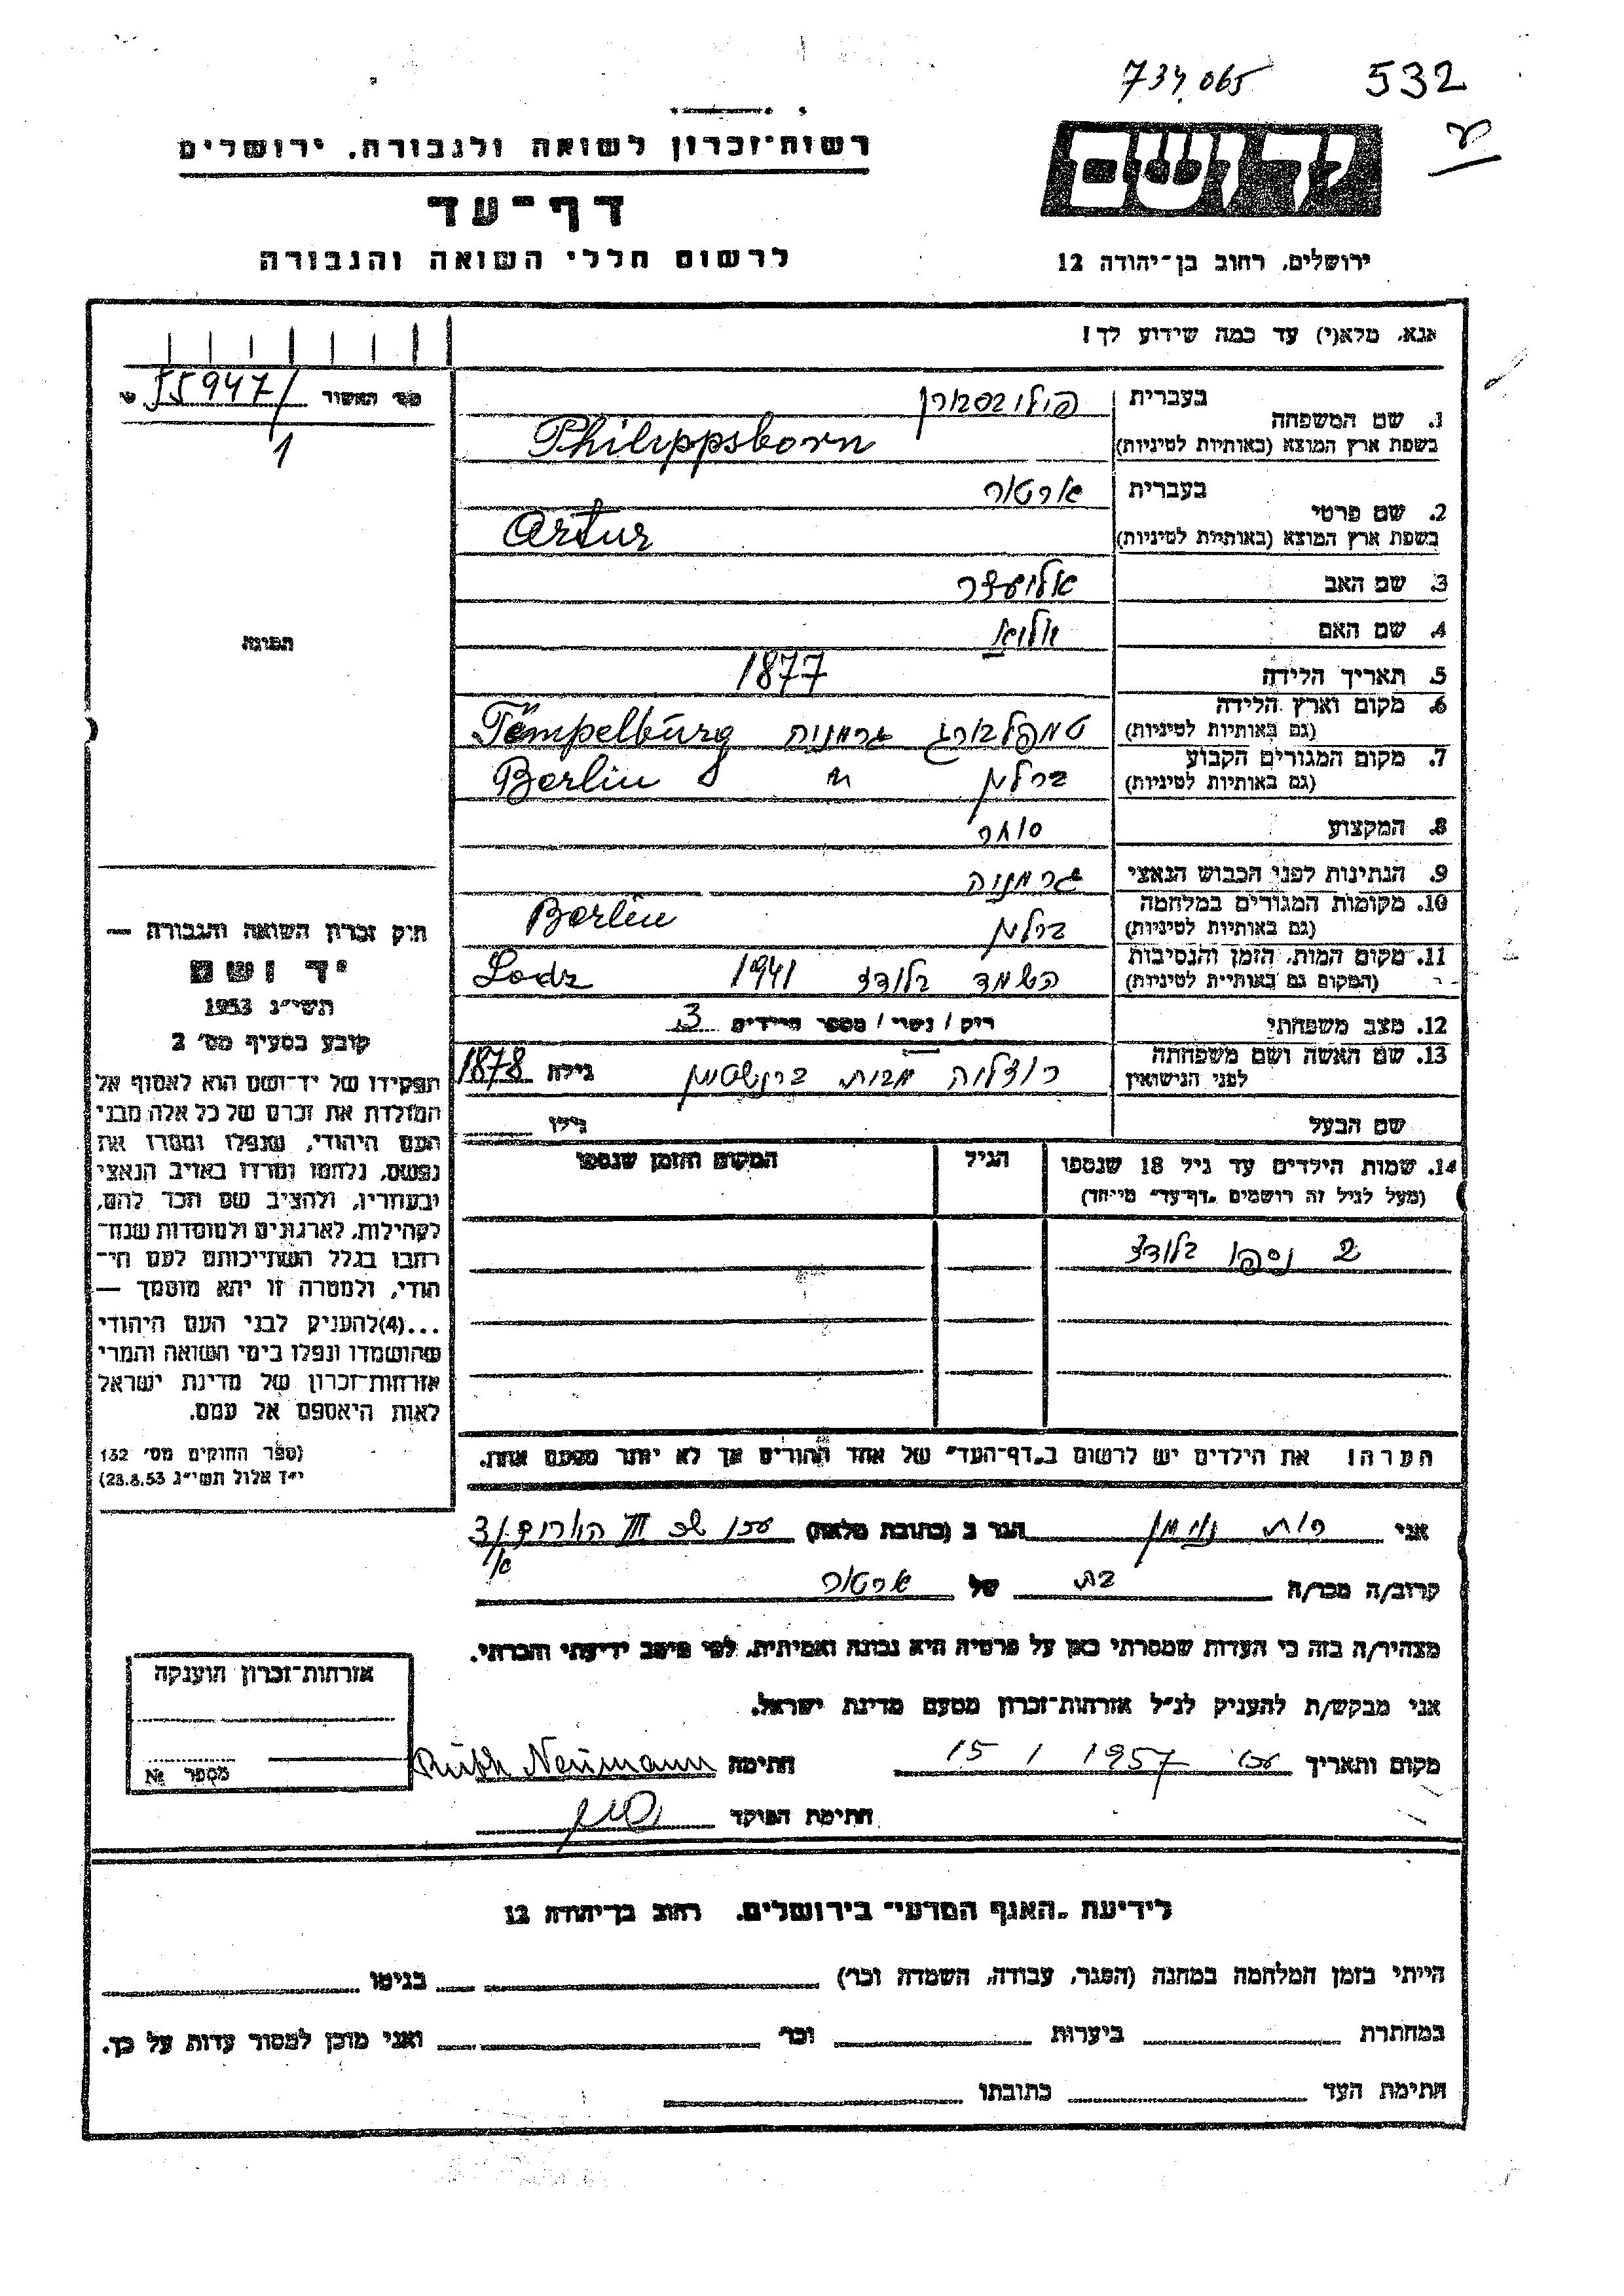 734.065 532
רשות־זכרון לשואה ולגבורה, ירושלים
דף־עד
לרשום חללי השואה והגבורה
יד ושם
ירושלים, רחוב בן־יהודה 12
אנא, מלא(י) עד כמה שידוע לך!
מס' האשור 55947/
1
1. שם המשפחה
בעברית
בשפת ארץ המוצא (באותיות לטיניות) Philippsborn
2. שם פרטי
בעברית ארטור
בשפת ארץ המוצא (באותיות לטיניות) Artur
3. שם האב אליעזר
4. שם האם
5. תאריך הלידה 1877
6. מקום וארץ הלידה
(גם באותיות לטיניות) טמפלבורג גרמניה Tempelburg
7. מקום המגורים הקבוע
(גם באותיות לטיניות) ברלין " Berlin
8. המקצוע סוחר
9. הנתינות לפני הכבוש הנאצי גרמניה
10. מקומות המגורים במלחמה
(גם באותיות לטיניות) ברלין Berlin
11. מקום המות, הזמן והנסיבות
(המקום גם באותיות לטיניות) הושמד בלודז 1941 Lodz
12. מצב משפחתי רווק / נשוי / מספר הילדים 3
13. שם האשה ושם משפחתה
לפני הנישואין רוזליה מבית ברנשטיין גילה 1878
שם הבעל גילו
14. שמות הילדים עד גיל 18 שנספו
(מעל לגיל זה רושמים "דף־עד" מייחד)
הגיל
המקום והזמן שנספו
2 נספו בלודז
הערה! את הילדים יש לרשום ב"דף־העד" של אחד ההורים אך לא יותר מפעם אחת.
תמונה
חוק זכרון השואה והגבורה —
יד ושם
תשי"ג 1953
קובע בסעיף מס' 2
תפקידו של יד־ושם הוא לאסוף אל
המולדת את זכרם של כל אלה מבני
העם היהודי, שנפלו ומסרו את
נפשם, נלחמו ומרדו באויב הנאצי
ובעוזריו, ולהציב שם וזכר להם,
לקהילות, לארגונים ולמוסדות שנח־
רבו בגלל השתייכותם לעם הי־
הודי, ולמטרה זו יהא מוסמך —
...(4)להעניק לבני העם היהודי
שהושמדו ונפלו בימי השואה והמרי
אזרחות־זכרון של מדינת ישראל
לאות היאספם אל עמם.
(ספר החוקים מס' 132
י"ז אלול תשי"ג 23.8.53)
אני רות נוימן הגר ב (כתובת מלאה)
קרוב/ה מכר/ה בת של ארטור
מצהיר/ה בזה כי העדות שמסרתי כאן על פרטיה היא נכונה ואמיתית, לפי מיטב ידיעתי והכרתי.
אני מבקש/ת להעניק לנ"ל אזרחות־זכרון מטעם מדינת ישראל.
מקום ותאריך 15 / 1 1957 חתימה Ruth Neumann
חתימת הפוקד
אזרחות־זכרון הוענקה
מספר №
לידיעת "האגף המדעי" בירושלים, רחוב בן־יהודה 12
הייתי בזמן המלחמה במחנה (הסגר, עבודה, השמדה וכו') בגיטו
במחתרת ביערות וכו' ואני מוכן למסור עדות על כך.
חתימת העד כתובתו